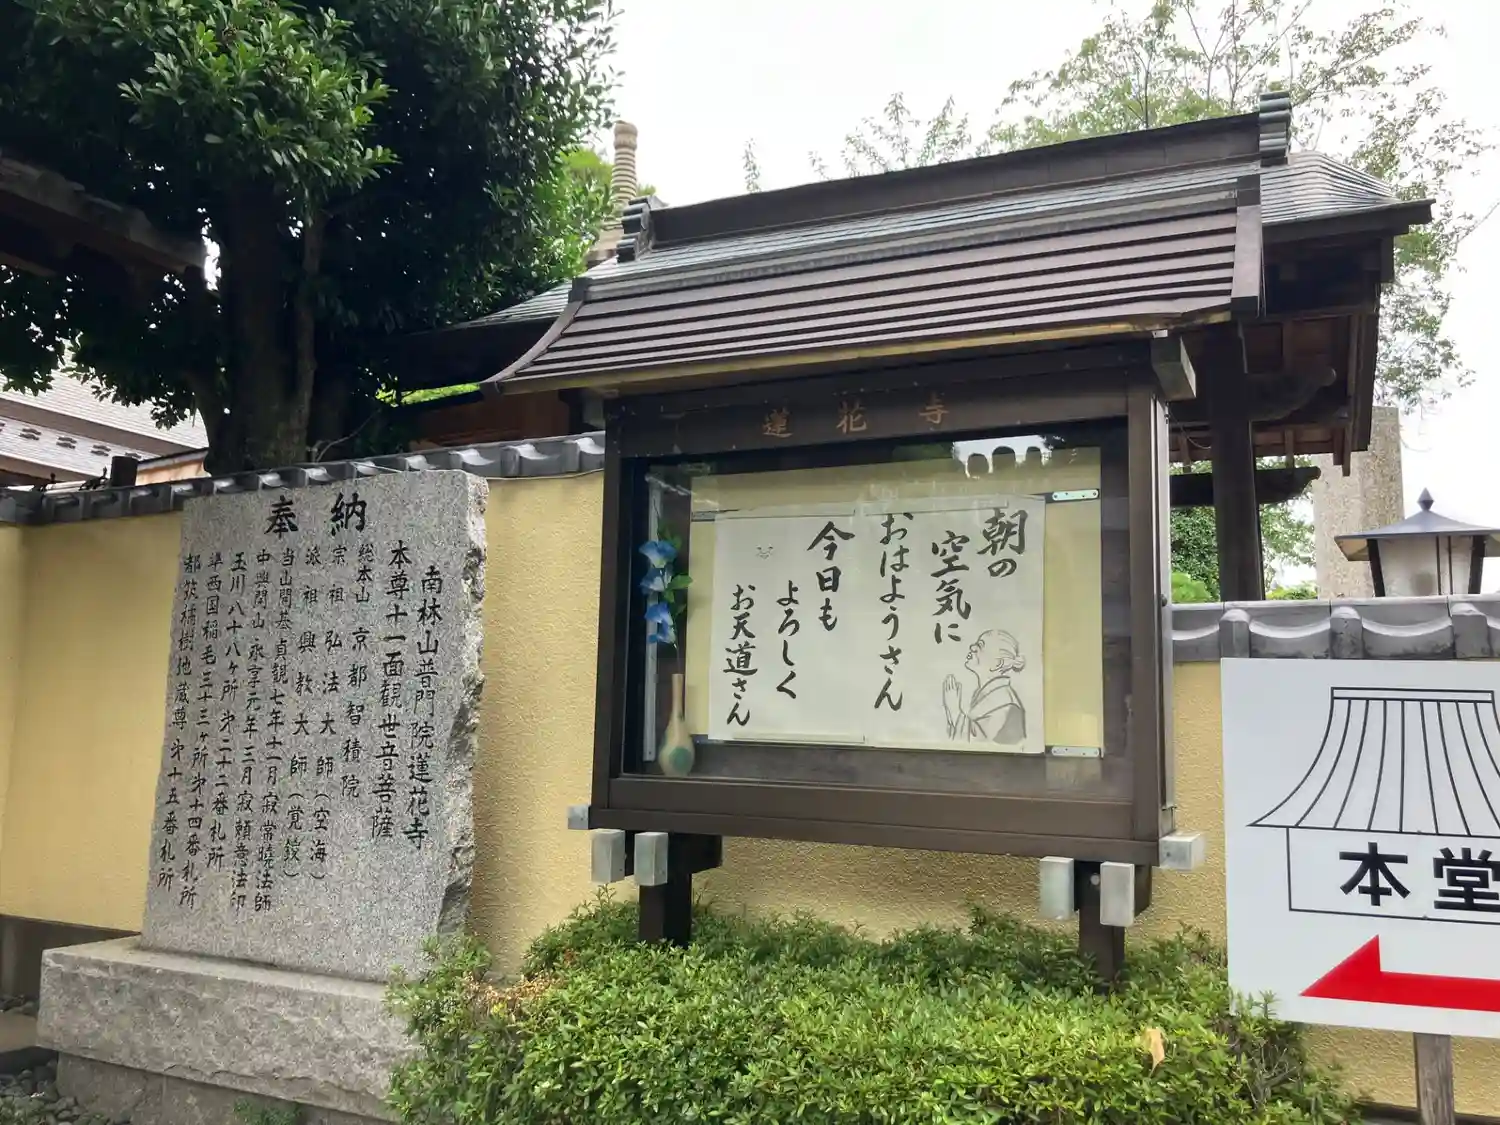 奉納
南林山普門院蓮花寺
本尊十一面観世音菩薩
総本山 京都智積院
宗祖 弘法大師(空海)
派祖 興教大師(覚鑁)
当山開基 貞観七年十一月寂常暁法師
中興開山 永享元年三月寂頼意法印
玉川八十八ヶ所 第二十二番札所
準西国稲毛三十三ヶ所第十四番札所
都筑橘樹地蔵尊 第十五番札所
蓮花寺
朝の
空気に
おはようさん
今日も
よろしく
お天道さん
本堂